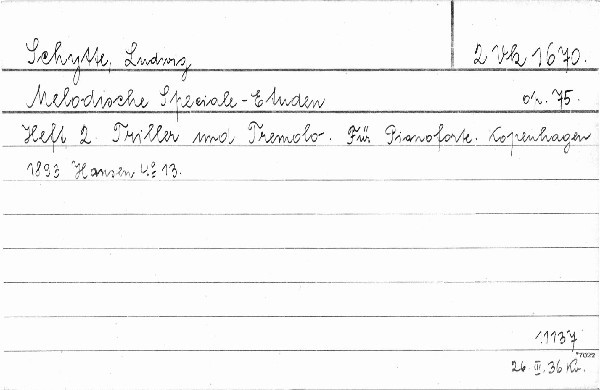 Schytte, Ludwig 2 Vh 1670.
Melodische Speciale-Etuden op. 75.
Heft 2. Triller und Tremolo. Für Pianoforte. Kopenhagen
1893 Hansen 4º 13.
1137
26. II. 36 Kr.